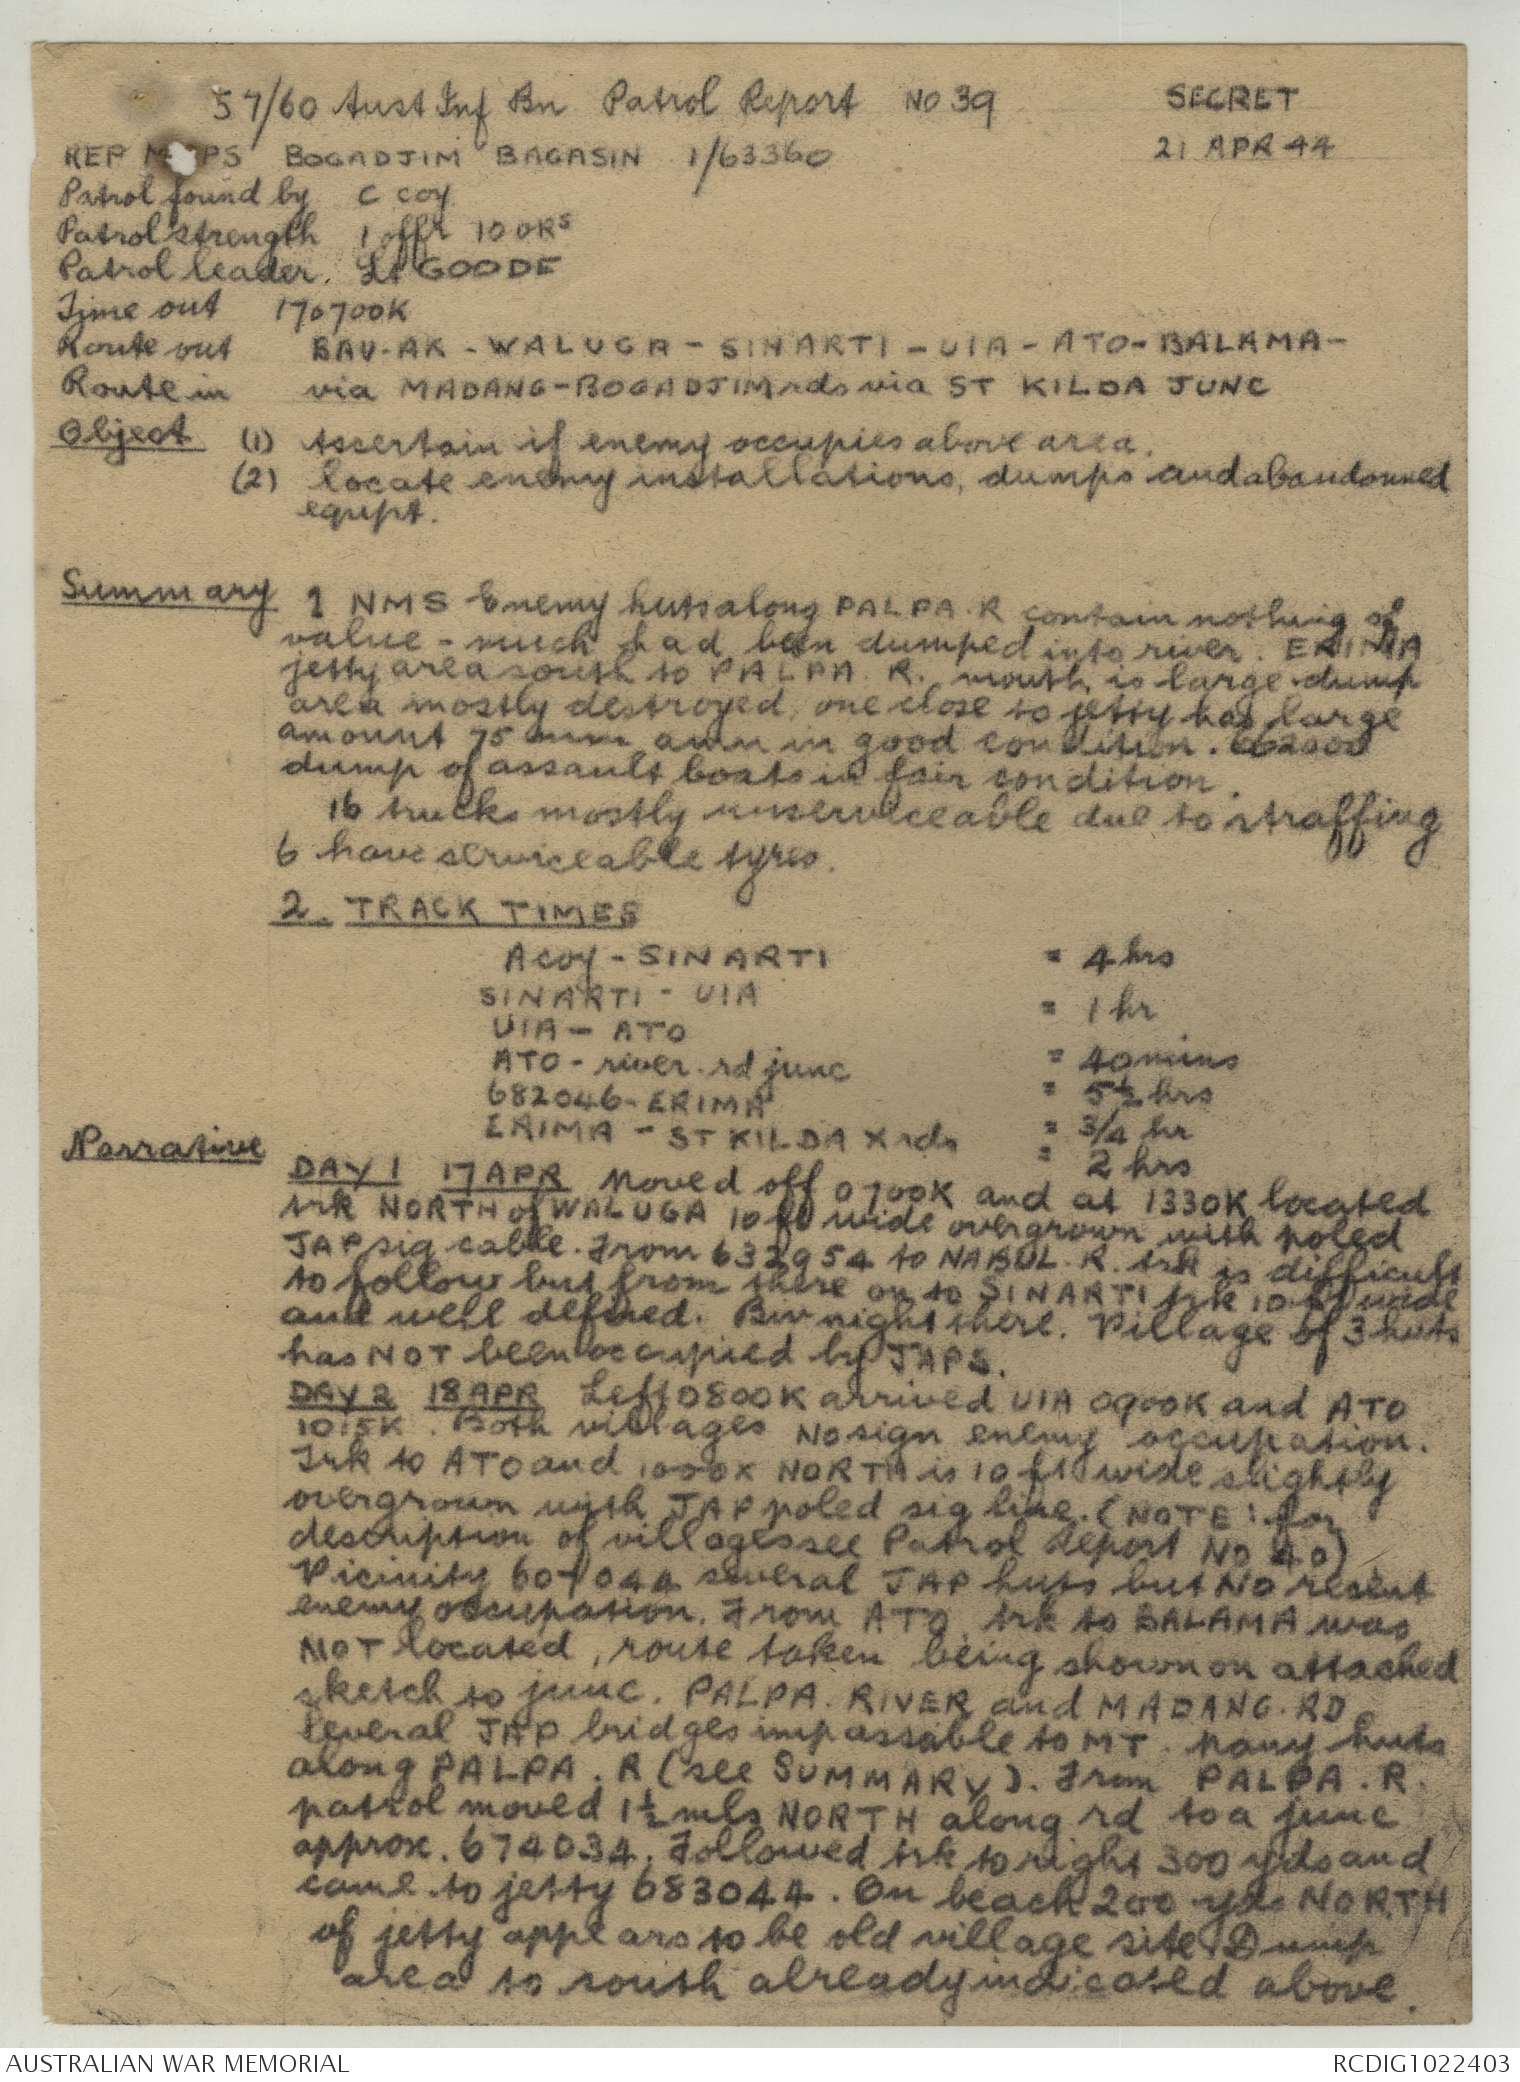 57/60 Aust Inf Bn Patrol Report NO 39 SECRET
REP MAPS BOGADJIM BAGASIN 1/63360 21 APR 44
Patrol found by C coy
Patrol strength 1 offr 10 ORs
Patrol leader. Lt GOODE
Time out 170700K
Route out BAU-AK - WALUGA - SINARTI - UIA - ATO - BALAMA -
Route in via MADANG - BOGADJIM rds via ST KILDA JUNC
Object (1) Ascertain if enemy occupies above area.
(2) locate enemy installations, dumps and abandonned
equpt.
Summary 1 NMS Enemy huts along PALPA. R contain nothing of
value - much had been dumped into river. ERIMA
jetty area south to PALPA. R. mouth is large dump
area mostly destroyed, one close to jetty has large
amount 75 mm amn in good condition.
dump of assault boats in fair condition.
16 trucks mostly unserviceable due to straffing
6 have serviceable tyres.
2. TRACK TIMES
A coy - SINARTI = 4 hrs
SINARTI - UIA = 1 hr
UIA - ATO = 40 mins
ATO - river. rd junc = 5½ hrs
682046 - ERIMA = 3/4 hr
ERIMA - ST KILDA X rds = 2 hrs
Narrative
DAY 1 17 APR Moved off 0700K and at 1330K located
trk NORTH of WALUGA 10 ft wide overgrown with poled
JAP sig cable. From 632954 to NABUL. R. trk is difficult
to follow but from there on to SINARTI trk 10 ft wide
and well defined. Biv night there. Village of 3 huts
has NOT been occupied by JAPS.
DAY 2 18 APR Left 0800K arrived UIA 0900K and ATO
1015K. Both villages No sign enemy occupation.
Trk to ATO and 1000x NORTH is 10 ft wide slightly
overgrown with JAP poled sig line. (NOTE: for
description of villages see Patrol Report NO 40)
Vicinity 607044 several JAP huts but NO recent
enemy occupation. From ATO, trk to BALAMA was
NOT located, route taken being shown on attached
sketch to junc. PALPA. RIVER and MADANG. RD
Several JAP bridges impassable to MT. Many huts
along PALPA. R (see SUMMARY). From PALPA. R.
patrol moved 1½ mls NORTH along rd to a junc
approx. 674034. Followed trk to right 300 yds and
came to jetty 683044. On beach 200 yds NORTH
of jetty appears to be old village site. Dump
area to south already indicated above.
AUSTRALIAN WAR MEMORIAL RCDIG1022403